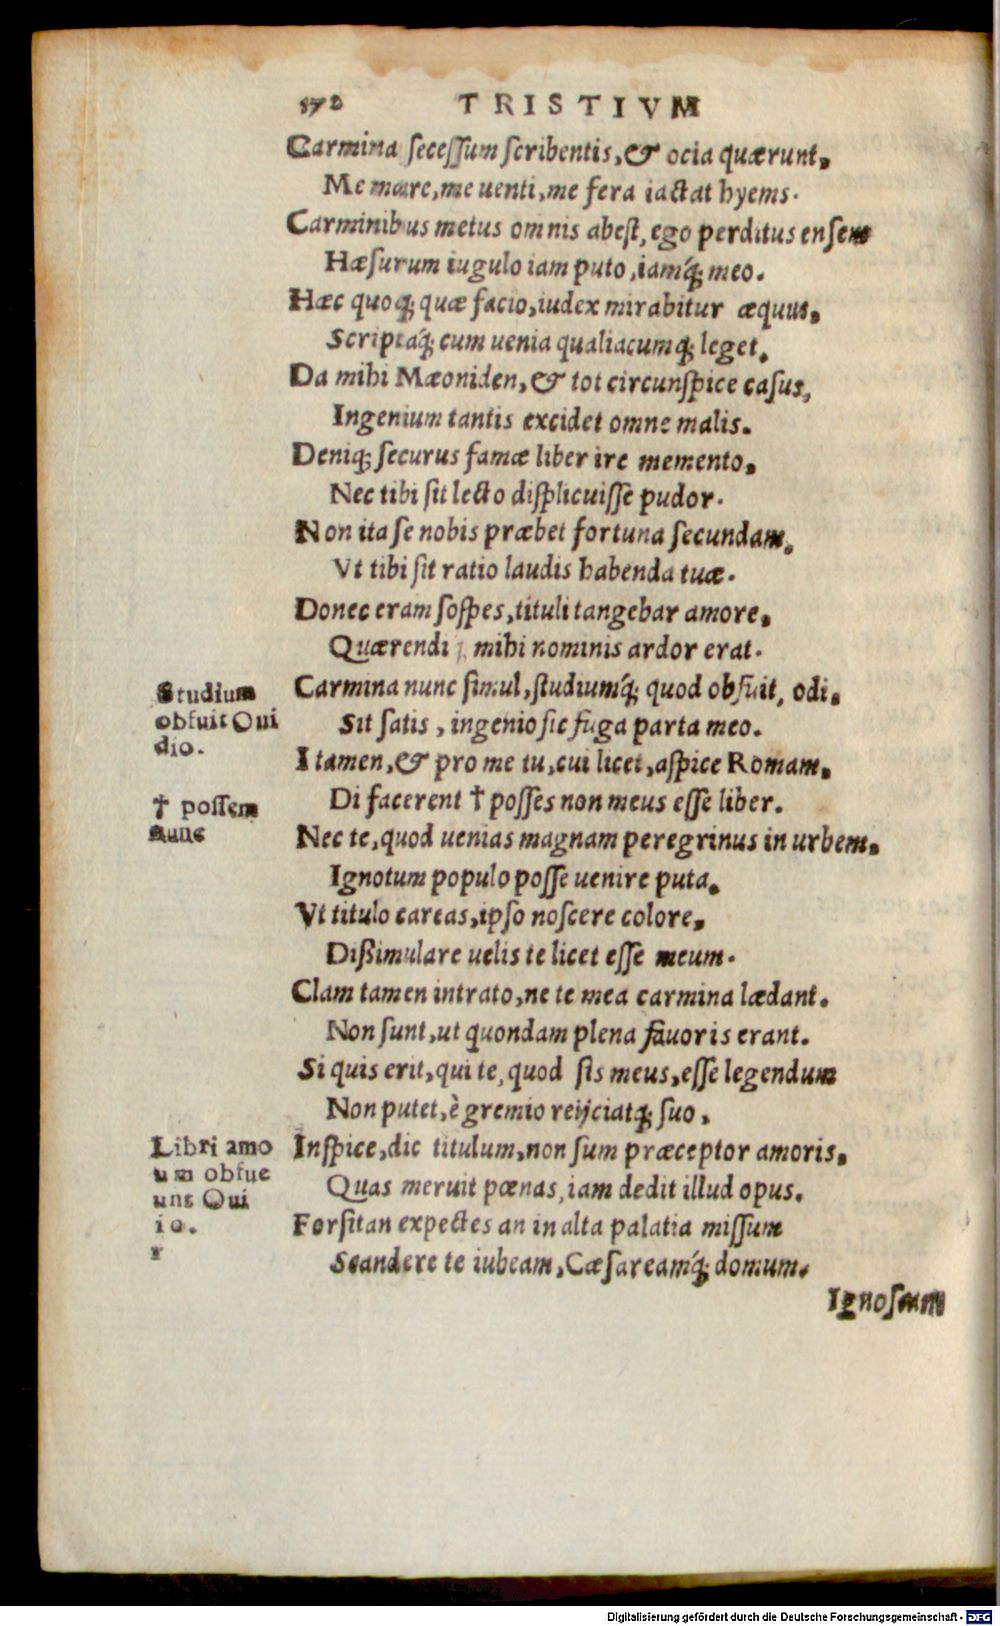 172 TRISTIVM
Carmina ſeceſſum ſcribentis, & ocia quærunt,
Me mare, me uenti, me fera iactat hyems.
Carminibus metus omnis abeſt, ego perditus enſem
Hæſurum iugulo iam puto, iamq́; meo.
Hæc quoq; quæ facio, iudex mirabitur æquus,
Scriptaq́; cum uenia qualiacumq; leget.
Da mihi Mæoniden, & tot circunſpice caſus,
Ingenium tantis excidet omne malis.
Deniq; ſecurus famæ liber ire memento,
Nec tibi ſit lecto diſplicuiſſe pudor.
Non ita ſe nobis præbet fortuna ſecundam,
Vt tibi ſit ratio laudis habenda tuæ.
Donec eram ſoſpes, tituli tangebar amore,
Quærendi mihi nominis ardor erat.
Studium
obfuit Oui
dio.
Carmina nunc ſimul, ſtudiumq́; quod obfuit, odi,
Sit ſatis, ingenio ſic fuga parta meo.
I tamen, & pro me tu, cui licet, aſpice Romam,
† poſſem
nunc
Di facerent † poſſes non meus eſſe liber.
Nec te, quod uenias magnam peregrinus in urbem,
Ignotum populo poſſe uenire puta.
Vt titulo careas, ipſo noſcere colore,
Dißimulare uelis te licet eſſe meum.
Clam tamen intrato, ne te mea carmina lædant.
Non ſunt, ut quondam plena fauoris erant.
Si quis erit, qui te, quod ſis meus, eſſe legendum
Non putet, è gremio reijciatq; ſuo,
Libri amo
um obfue
unt Oui
io.
r
Inſpice, dic titulum, non ſum præceptor amoris,
Quas meruit pœnas, iam dedit illud opus.
Forſitan expectes an in alta palatia miſſum
Scandere te iubeam, Cæſareamq́; domum.
Ignoſcant
Digitalisierung gefördert durch die Deutsche Forschungsgemeinschaft - DFG